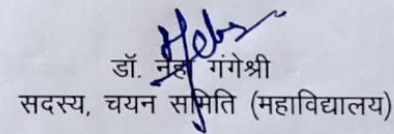 डॉ. नेहा गंगेश्री
सदस्य, चयन समिति (महाविद्यालय)